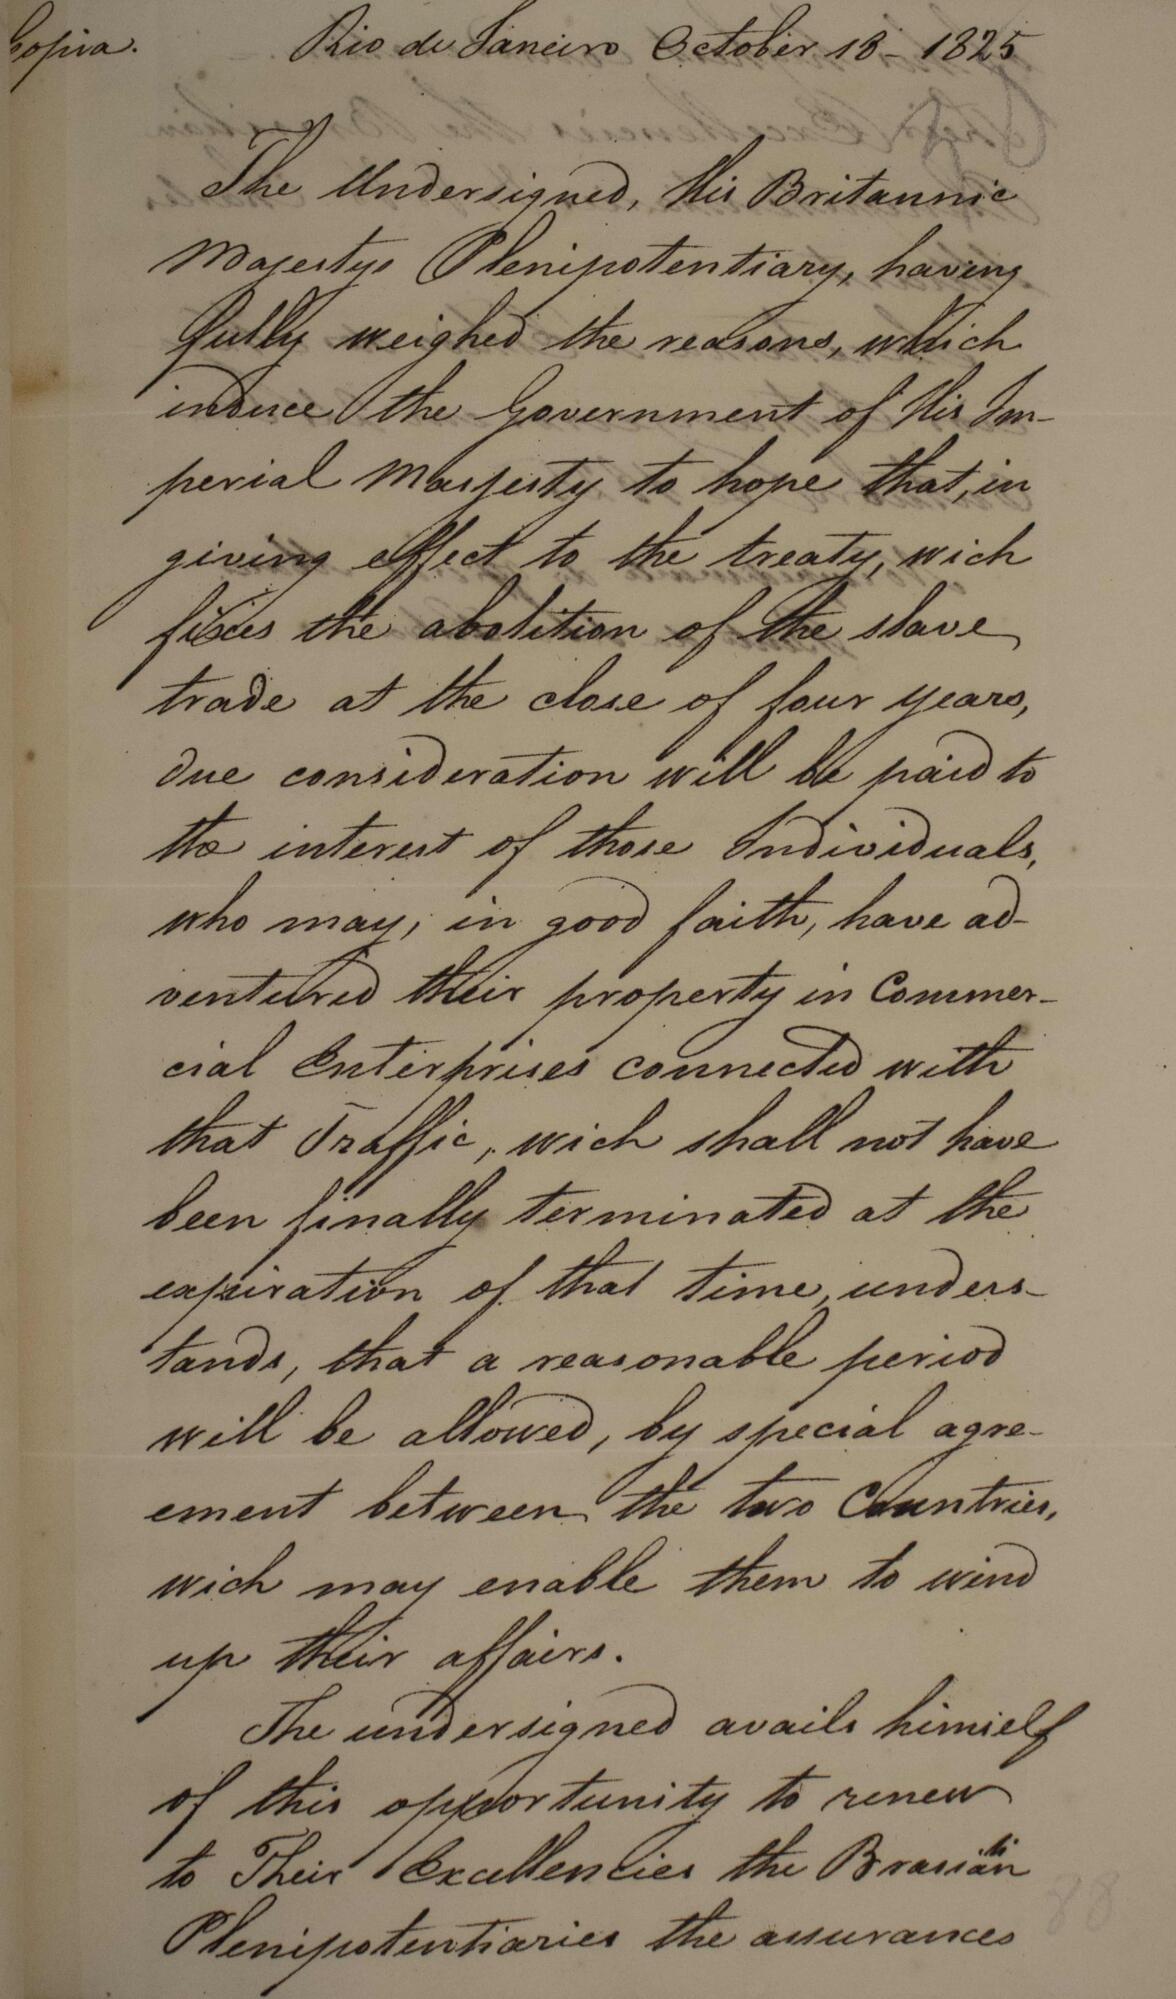 Copia.
Rio de Janeiro October 18 - 1825
The Undersigned, His Britannic
Majestys Plenipotentiary, having
fully weighed the reasons, which
induce the Government of His Im-
perial Masjesty to hope that, in
giving effect to the treaty, wich
fixes the abolition of the slave
trade at the close of four years,
due consideration will be paid to
the interest of those Individuals,
who may, in good faith, have ad-
ventured their property in Commer-
cial Enterprises connected with
that Traffic, wich shall not have
been finally terminated at the
expiration of that time, unders-
tands, that a reasonable period
will be allowed, by special agre-
ement between the two Countries,
wich may enable them to wind
up their affairs.
The undersigned avails himself
of this opportunity to renew
to Their Excellencies the Brasilian
Plenipotentiaries the assurances
88